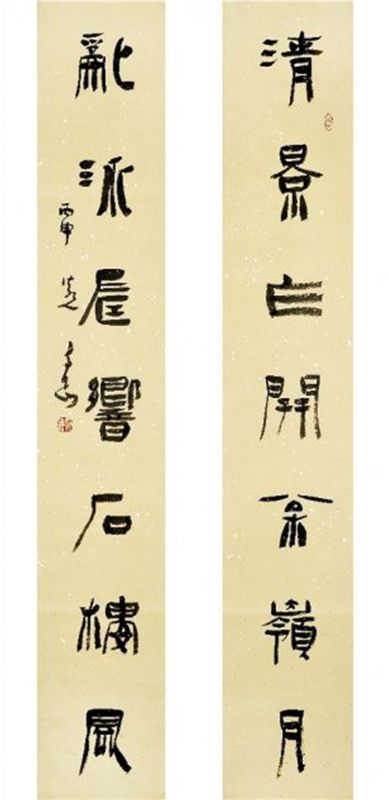 清景乍開松嶺月
亂流長響石樓風
丙申